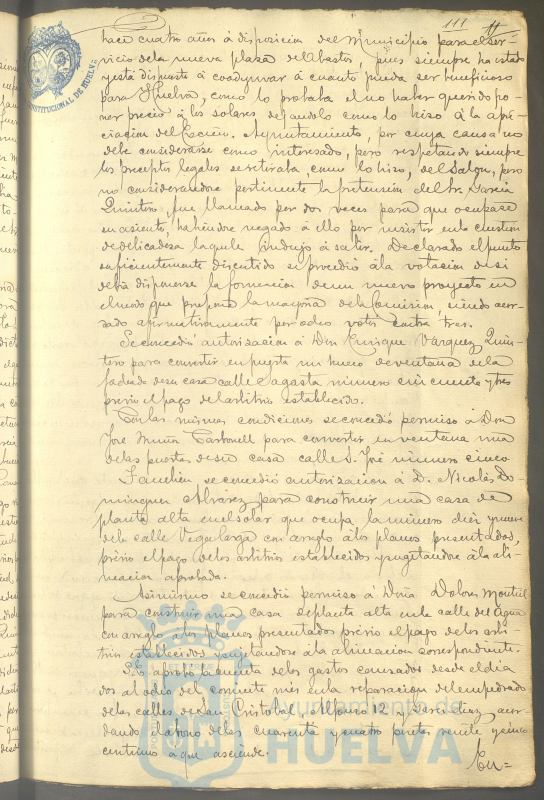 111
hace cuatro años á disposicion del Municipio para el ser-
vicio de la nueva plaza de Abastos, pues siempre ha estado
y está dispuesto á coadyuvar á cuanto pueda ser beneficioso
para Huelva, como lo probaba el no haber querido po-
ner precio á los solares dejandolo como lo hizo á la apre-
ciacion del Excmo. Ayuntamiento, por cuya causa no
debe considerarse como interesado, pero respetando siempre
los preceptos legales se retiraba, como lo hizo, del Salon; pero
no considerandose pertinente la pretension del Sr. Garcia
Quintero, fue llamado por dos veces para que ocupase
su asiento, habiendose negado á ello por insistir en la cuestion
de delicadeza la que le indujo á salir. Declarado el punto
suficientemente discutido se procedió á la votacion de si
debia disponerse la formacion de un nuevo proyecto en
el modo que propone la mayoria de la Comision, siendo acor-
dado afirmativamente por ocho votos contra tres.
Se concedió autorizacion á Don Enrique Vazquez Quin-
tero para convertir en puerta un hueco de ventana de la
fachada de su casa calle Sagasta número cincuenta y tres
previo el pago del arbitrio establecido.
Con las mismas condiciones se concedió permiso á Don
José Muñiz Carbonell para convertir en ventana una
de las puertas de su casa calle S. José número cinco
Tambien se concedió autorizacion á D. Nicolás Do-
minguez Alvarez para construir una casa de
planta alta en el solar que ocupa la número diez y nueve
de la calle Vega larga con arreglo á los planos presentados,
prévio el pago de los arbitrios establecidos y sugetandose á la ali-
neacion aprobada.
Asimismo se concedió permiso á Doña Dolores Montiel
para construir una casa de planta alta en la calle del Agua
con arreglo á los planos presentados prévio el pago de los arbi-
trios establecidos y sugetandose á la alineacion correspondiente.
Se aprobó la cuenta de los gastos causados desde el dia
dos al ocho del corriente mes en la reparacion del empedrado
de las calles de San Cristobal, Alfonso XII y Garci diaz, acor-
dando el abono de las cuarenta y cuatro pesetas veinte y cinco
centimos á que asciende.
En=
CONSTITUCIONAL DE HUELVA
Ayuntamiento de
HUELVA